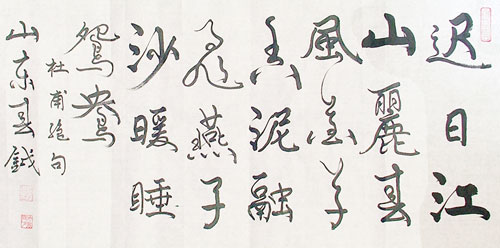 迟日江
山麗春
風花草
香泥融
飛燕子
沙暖睡
鴛鴦
杜甫絶句
山东春